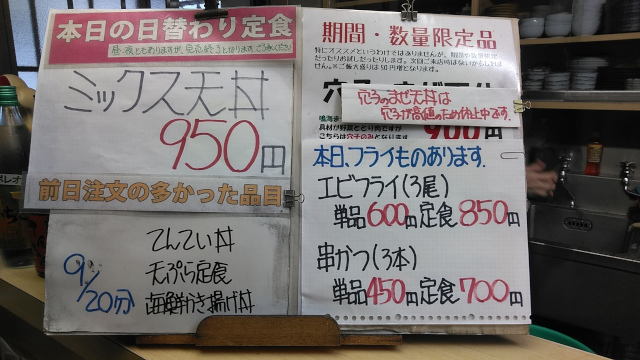 本日の日替わり定食
昼・夜ともありますが、完売続きとなります。ご了承ください
ミックス天丼
950円
前日注文の多かった品目
9/20分
てんてい丼
天ぷら定食
海鮮かき揚げ丼
期間・数量限定品
特にオススメというわけではありませんが、期間や数量限定
だったりお試しだったりします。次回ご来店時はないかもしれま
せん。※ご飯大盛りは50円増となります。
穴子のまぜ天丼は
穴子が高値のため休止中です。
鳴海
具材が野菜ととり肉ですが
こちらは穴子のみとなります
900円
本日、フライものあります。
エビフライ(3尾)
単品600円定食850円
串かつ(3本)
単品450円定食700円